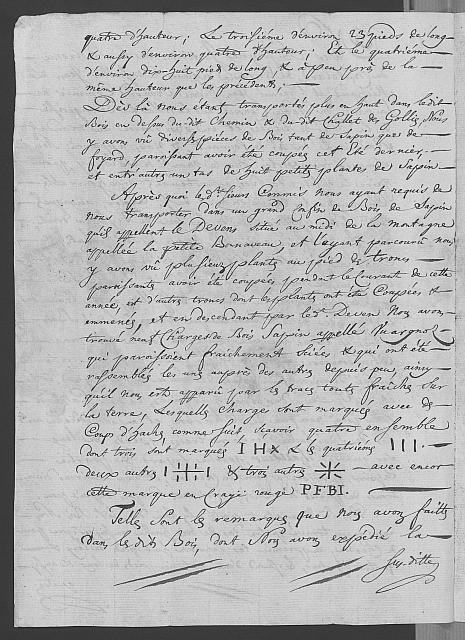 quatre d'hauteur; Le troisième d'environ 23 pieds de long
& aussy d'environ quatre d'hauteur; Et le quatrieme
d'environ dix huit pied de long, & a peu près de la
même hauteur que les precedents; —
Dès là nous étant transportés plus en haut dans ledit
Bois en dessus du dit Chemin & du dit Challet des Nous
y avons vû divers pièces de Bois tant de Sapin que de
foyard, paroissant avoir été coupés cet Eté dernier,
et entr'autres un tas de huit petits plantes de Sapin —
Après quoi le dt Sieurs Commis nous ayant requis de
nous transporter dans un grand de Bois de Sapin
qu'ils appellent le Devens situé au midi de la montagne
appellée la petite Bonaveau, et l'ayant parcouru nous
y avons vû plusieurs plants au pied des trones
paroissants avoir été coupées pendant le Courant de cette
année, et d'autres trones dont les plants ont été Coupées &
emmenés, et en descendant par le dt Devens Nous avons
trouvé neuf Charges de Bois Sapin appellé
qui paroissoient fraichement Sciées & qui ont été
rassemblés les uns auprès des autres depuis peu, ainsy
qu'il nous est apparu par les traces toutes fraiches sur
la terre, Lesquelles charges sont marqués avec des
Coups d'hache comme suit scavoir quatre ensemble
dont trois sont marqués I H X X & le quatrième III. —
deux autres & trois autres — avec encor
cette marque en Craye rouge PFBI. —
Telles sont les remarques que nous avons faittes
dans les dits Bois, dont Nous avons expédié la —
susditte